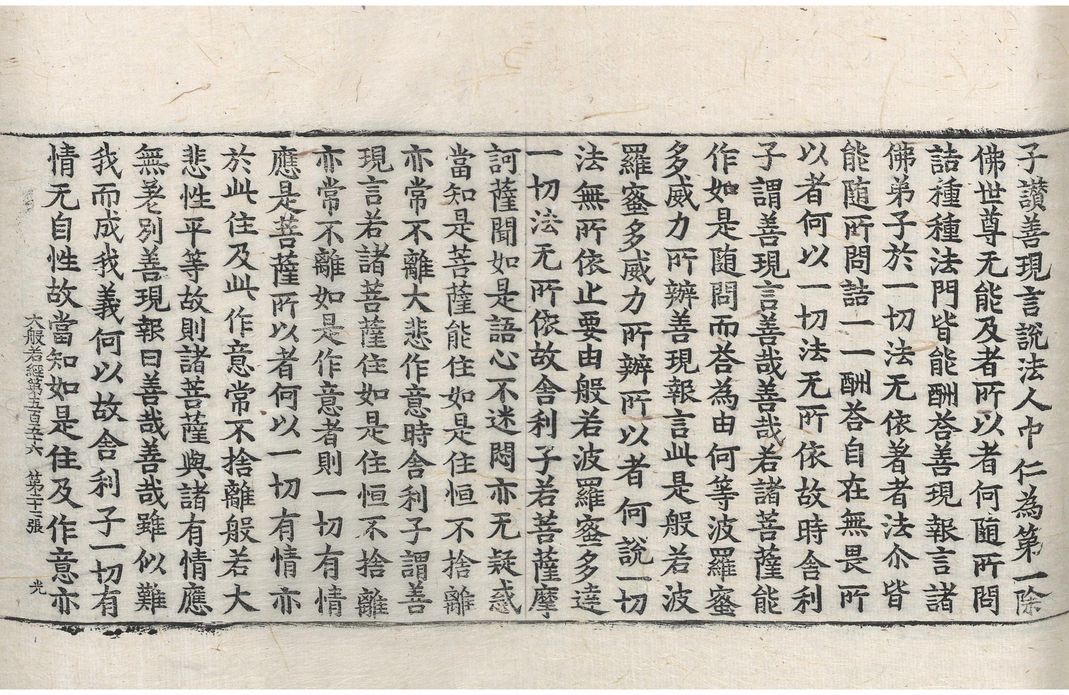 子讃善現言說法人中仁為第一除
佛世尊无能及者所以者何随所問
詰種種法門皆能酬荅善現報言諸
佛弟子於一切法无依著者法尒皆
能随所問詰一一酬荅自在無畏所
以者何以一切法无所依故時舎利
子謂善現言善哉善哉若諸菩薩能
作如是随問而荅為由何等波羅蜜
多威力所辦善現報言此是般若波
羅蜜多威力所辦所以者何說一切
法無所依止要由般若波羅蜜多達
一切法无所依故舎利子若菩薩摩
訶薩聞如是語心不迷悶亦无疑惑
當知是菩薩能住如是住恒不捨離
亦常不離大悲作意時舎利子謂善
現言若諸菩薩住如是住恒不捨離
亦常不離如是作意者則一切有情
應是菩薩所以者何以一切有情亦
於此住及此作意常不捨離般若大
悲性平等故則諸菩薩與諸有情應
無差別善現報曰善哉善哉雖似難
我而成我義何以故舎利子一切有
情无自性故當知如是住及作意亦
大般若經第五百五十六 第二十三張 光